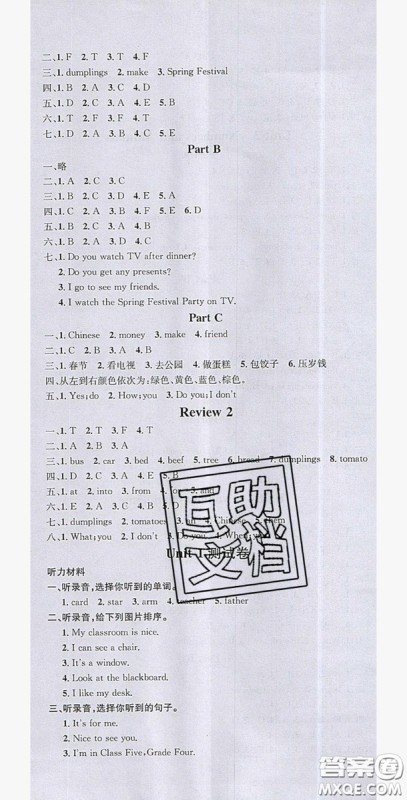 二、1. F  2. T  3. T  4. F
三、1. dumplings  2. make  3. Spring Festival
四、1. B  2. A  3. C  4. D
五、1. C  2. D  3. A  4. E  5. B
六、1. T  2. F  3. T  4. F
七、1. D  2. C  3. A  4. E  5. B
Part B
一、略
二、1. A  2. C  3. C
三、1. D  2. C  3. A  4. B
四、1. B  2. A  3. F  4. C  5. E  6. D
五、1. B  2. A  3. A
六、1. D  2. C  3. B  4. A
七、1. Do you watch TV after dinner?
2. Do you get any presents?
3. I go to see my friends.
4. I watch the Spring Festival Party on TV.
Part C
一、1. Chinese  2. money  3. make  4. friend
二、1. C  2. B  3. A  4. A
三、1. 春节  2. 看电视  3. 去公园  4. 做蛋糕  5. 包饺子  6. 压岁钱
四、从左到右颜色依次为:绿色、黄色、蓝色、棕色。
五、1. Yes;do  2. How;you  3. Do;you;I;don't
Review 2
一、1. T  2. T  3. F  4. T
二、1. B  2. A  3.
三、1. bus  2. car  3. bed  4. beef  5. tree  6. bread  7. dumplings  8. tomato
四、1. D  2. C  3. A
五、1. at  2. into  3. from
六、1. D  2. A  3. E
七、1. dumplings  2. tomatoes
八、1. What;you  2. I;don't  3. Do you
Unit 1 测试卷
听力材料
一、听录音,选择你听到的单词。
1. card  2. star  3. arm  4. teacher  5. father
二、听录音,给下列图片排序。
1. My classroom is nice.
2. I can see a chair.
3. It's a window.
4. Look at the blackboard.
5. I like my desk.
三、听录音,选择你听到的句子。
1. It's for me.
2. Nice to see you.
3. I'm in Class Five,Grade Four.
互助
文档
答案圈
MXQE.COM